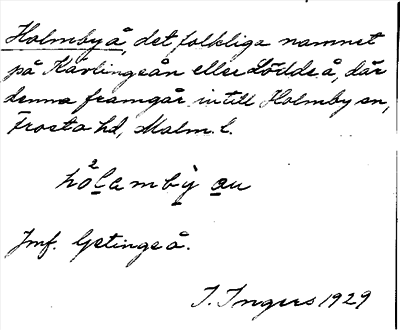 Holmbyå, det folkliga namnet
på Kävlingeån eller Lödde å, där
denna framgår intill Holmby sn,
Frosta hd, Malm. l.
Jmf. Getingeå.
I. Ingers 1929